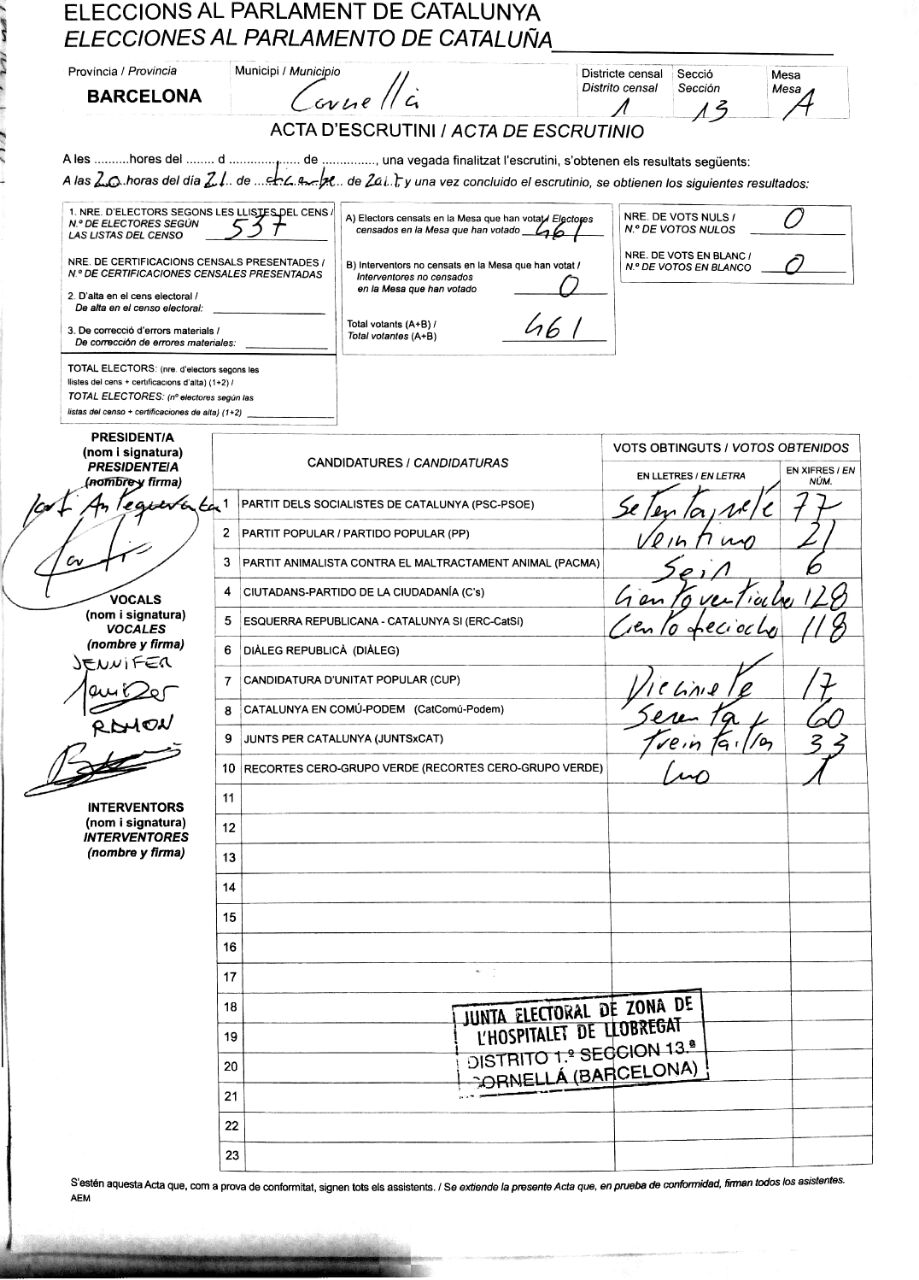 ELECCIONS AL PARLAMENT DE CATALUNYA
ELECCIONES AL PARLAMENTO DE CATALUÑA
Provincia / Provincia
BARCELONA
Municipi / Municipio
Cornellà
Districte censal
Distrito censal
1
Secció
Sección
13
Mesa
Mesa A
ACTA D'ESCRUTINI / ACTA DE ESCRUTINIO
A les ..........hores del ........ d ....................... de ..............., una vegada finalitzat l'escrutini, s'obtenen els resultats següents:
A las 20 horas del día 21 de diciembre de 2017 y una vez concluido el escrutinio, se obtienen los siguientes resultados:
1. NRE. D'ELECTORS SEGONS LES LLISTES DEL CENS /
N.º DE ELECTORES SEGÚN
LAS LISTAS DEL CENSO 537
NRE. DE CERTIFICACIONS CENSALS PRESENTADES /
N.º DE CERTIFICACIONES CENSALES PRESENTADAS
2. D'alta en el cens electoral /
De alta en el censo electoral:
3. De correcció d'errors materials /
De corrección de errores materiales:
TOTAL ELECTORS: (nre. d'electors segons les
llistes del cens + certificacions d'alta) (1+2) /
TOTAL ELECTORES: (nº electores según las
listas del censo + certificaciones de alta) (1+2)
A) Electors censats en la Mesa que han votat / Electores
censados en la Mesa que han votado 461
B) Interventors no censats en la Mesa que han votat /
Interventores no censados
en la Mesa que han votado 0
Total votants (A+B) /
Total votantes (A+B) 461
NRE. DE VOTS NULS /
N.º DE VOTOS NULOS 0
NRE. DE VOTS EN BLANC /
N.º DE VOTOS EN BLANCO 0
PRESIDENT/A
(nom i signatura)
PRESIDENTE/A
(nombre y firma)
VOCALS
(nom i signatura)
VOCALES
(nombre y firma)
JENNIFER
RAMON
INTERVENTORS
(nom i signatura)
INTERVENTORES
(nombre y firma)
CANDIDATURES / CANDIDATURAS
VOTS OBTINGUTS / VOTOS OBTENIDOS
EN LLETRES / EN LETRA
EN XIFRES / EN
NÚM.
1 PARTIT DELS SOCIALISTES DE CATALUNYA (PSC-PSOE) 77
2 PARTIT POPULAR / PARTIDO POPULAR (PP) Veintiuno 21
3 PARTIT ANIMALISTA CONTRA EL MALTRACTAMENT ANIMAL (PACMA) Seis 6
4 CIUTADANS-PARTIDO DE LA CIUDADANÍA (C's) Cientoventiocho 128
5 ESQUERRA REPUBLICANA - CATALUNYA SI (ERC-CatSí) Ciento dieciocho 118
6 DIÀLEG REPUBLICÀ (DIÀLEG)
7 CANDIDATURA D'UNITAT POPULAR (CUP) 17
8 CATALUNYA EN COMÚ-PODEM (CatComú-Podem) 60
9 JUNTS PER CATALUNYA (JUNTSxCAT) 33
10 RECORTES CERO-GRUPO VERDE (RECORTES CERO-GRUPO VERDE) Uno 1
11
12
13
14
15
16
17
18
19
20
21
22
23
JUNTA ELECTORAL DE ZONA DE
L'HOSPITALET DE LLOBREGAT
DISTRITO 1.º SECCION 13.ª
CORNELLÁ (BARCELONA)
S'estén aquesta Acta que, com a prova de conformitat, signen tots els assistents. / Se extiende la presente Acta que, en prueba de conformidad, firman todos los asistentes.
AEM